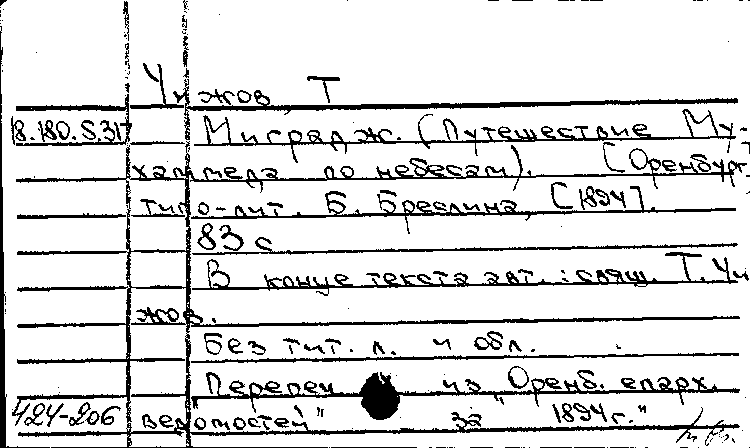 Чижов, Т
18.180.5.317 Миградж. (Путешествие Му-
хаммеда по небесам). [Оренбург,]
типо-лит. Б. Бреслина, [1894].
83 с
В конце текста авт.: свящ. Т. Чи
жов.
Без тит. л. и обл.
Перепеч из "Оренб. епарх.
424-206 ведомостей" за 1894 г."